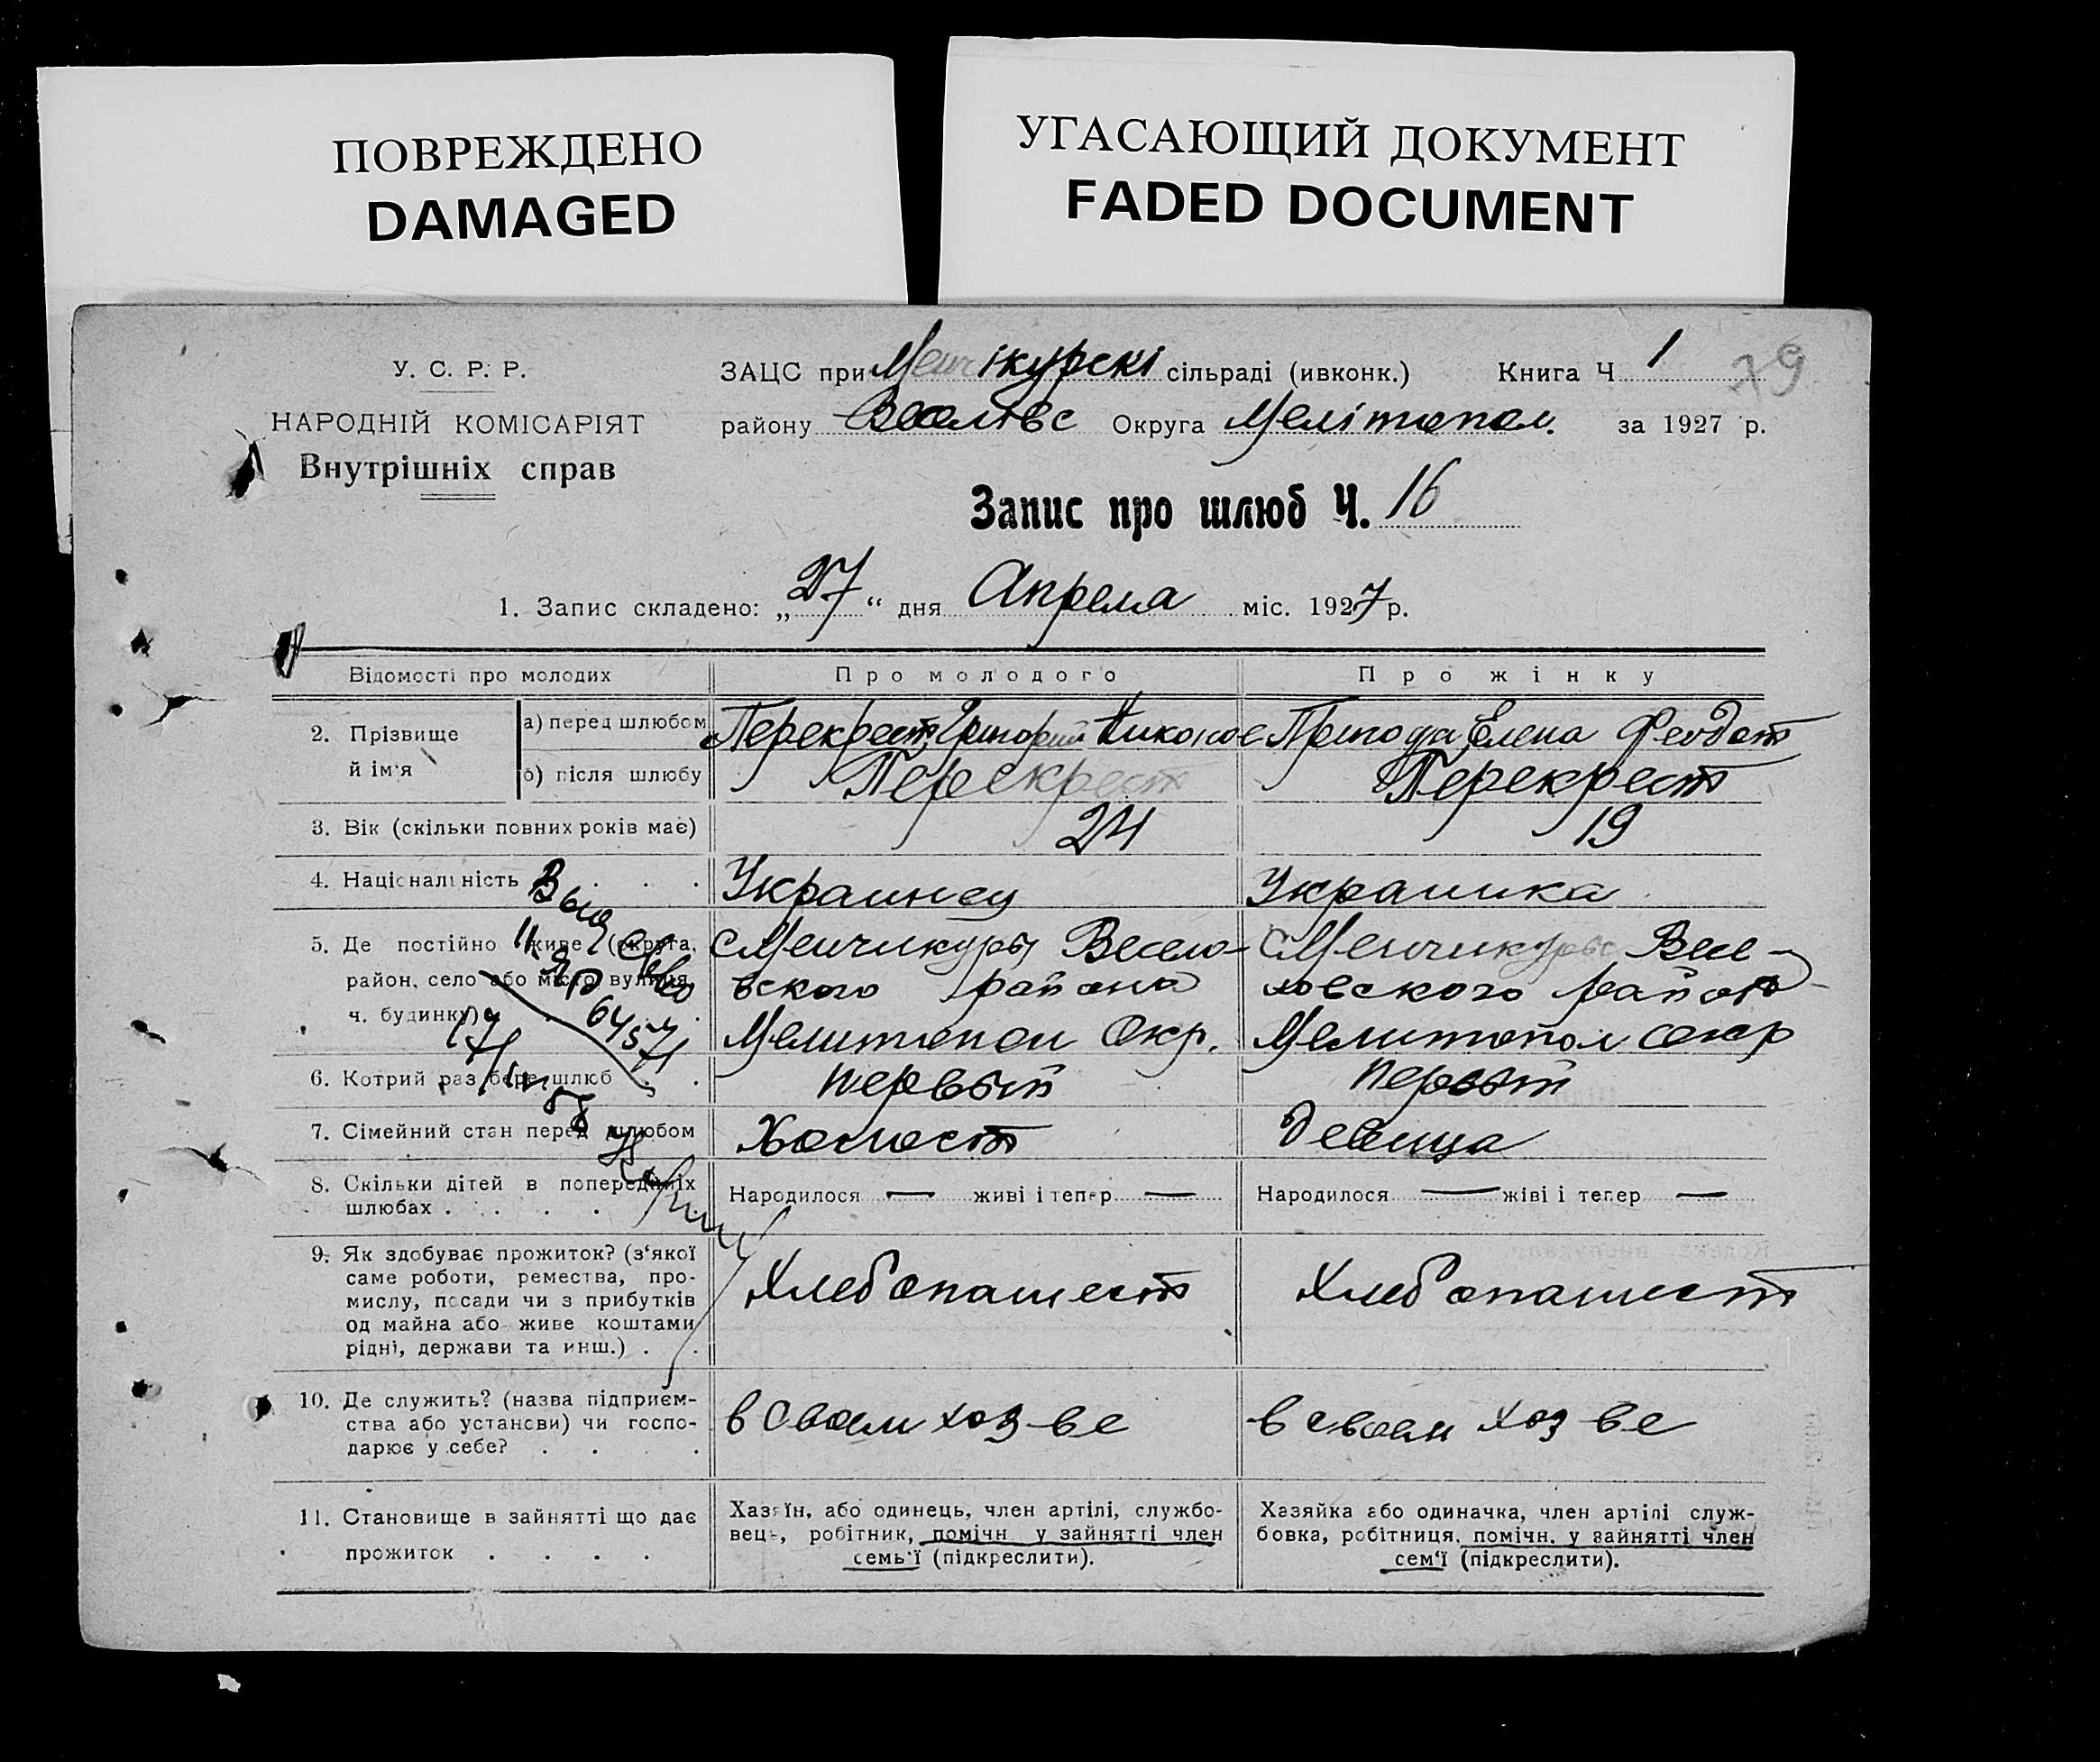 ПОВРЕЖДЕНО
DAMAGED
УГАСАЮЩИЙ ДОКУМЕНТ
FADED DOCUMENT
У. С. Р. Р.
НАРОДНІЙ КОМІСАРІЯТ
Внутрішніх справ
ЗАЦС при Менчікурскі сільраді (ивконк.) Книга Ч 1
79
району Веселівс Округа Мелітопол. за 1927 р.
Запис про шлюб Ч. 16
1. Запис складено: „27“ дня Апреля міс. 1927 р.
Відомості про молодих
Про молодого
Про жінку
2. Прізвище й ім'я
а) перед шлюбом
Перекрест Григорий Никонов
Пригода Елена Феодот
б) після шлюбу
Перекрест
Перекрест
3. Вік (скільки повних років має)
24
19
4. Національність . . .
Украинец
Украинка
5. Де постійно живе (округа,
район, село або місто, вулиця,
ч. будинку)
С Менчикуры Весело-
вского района
Мелитопол Окр.
С Менчикуры Весе-
ловского района
Мелитопол окр
Выд св во
II ЯР 645471
17/IV 58
6. Котрий раз бере шлюб . .
первый
первый
7. Сімейний стан перед шлюбом
Холост
девица
8. Скільки дітей в попередніх
шлюбах . . . . .
Народилося — живі і тепер —
Народилося — жіві і тепер —
9. Як здобуває прожиток? (з'якої
саме роботи, ремества, про-
мислу, посади чи з прибутків
од майна або живе коштами
рідні, держави та инш.) . .
Хлебопашест
Хлебопашест
10. Де служить? (назва підприєм-
ства або установи) чи госпо-
дарює у себе? . . . .
в своем хоз-ве
в своем хоз ве
11. Становище в зайнятті що дає
прожиток . . . .
Хазяїн, або одинець, член артілі, службо-
вець, робітник, помічн. у зайнятті член
семь'ї (підкреслити).
Хазяйка або одиначка, член артілі служ-
бовка, робітниця, помічн. у зайнятті член
сем'ї (підкреслити).